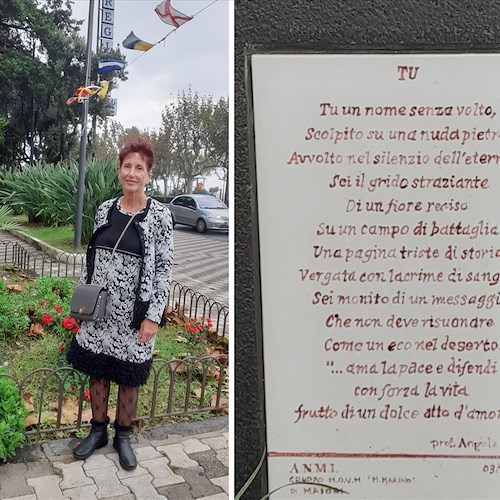 REGI
TU
Tu un nome senza volto,
Scolpito su una nuda pietr
Avvolto nel silenzio dell'etern
Sei il grido straziante
Di un fiore reciso
Su un campo di battaglia
Una pagina triste di storia
Vergata con lacrime di sang
Sei monito di un messaggi
Che non deve risuonare
Come un eco nel deserto:
"... ama la pace e difendi
con forza la vita
frutto di un dolce atto d'amor
prof. Angiola
A.N.M.I. 03/
GRUPPO M.O.V.M "M. MARINO"
DI MAIORI